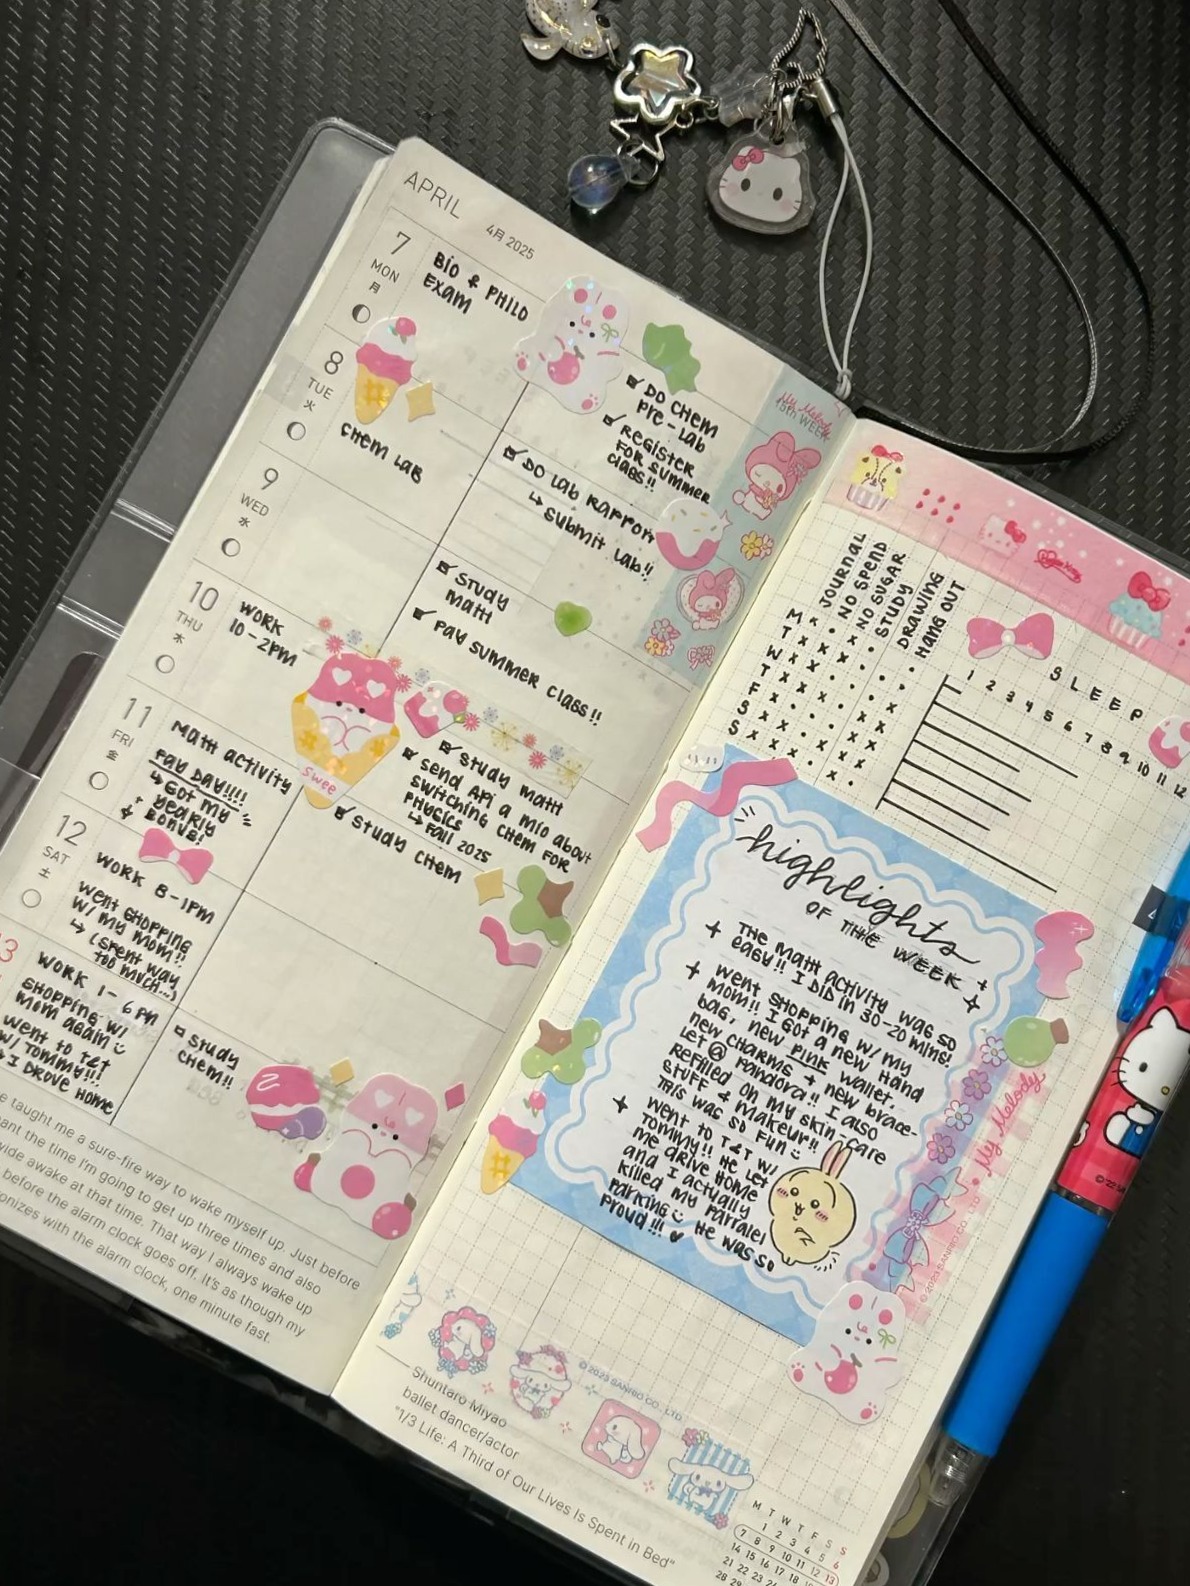 APRIL
4月 2025
7
MON
月
BIO & PHILO
EXAM
DO CHEM
PRE-LAB
REGISTER
FOR SUMMER
CLASS!!
8
TUE
火
CHEM LAB
DO LAB RAPPORT
↳ SUBMIT LAB!!
9
WED
水
STUDY
MATH
PAY SUMMER CLASS!!
10
THU
木
WORK
10-2PM
STUDY MATH
SEND API A MIO ABOUT
SWITCHING CHEM FOR
PHYSICS
↳ FALL 2025
11
FRI
金
MATH ACTIVITY
PAY DAY!!!!
↳ GOT MY
YEARLY
BONUS!
Swee
STUDY CHEM
12
SAT
土
WORK 8-1PM
WENT SHOPPING
W/ MY MOM!!
↳ (SPENT WAY
TOO MUCH...)
13
WORK 1-6PM
SHOPPING W/
MOM AGAIN
WENT TO T&T
W/ TOMMY!!!
I DROVE HOME
STUDY
CHEM!!
e taught me a sure-fire way to wake myself up. Just before
ant the time I'm going to get up three times and also
vide awake at that time. That way I always wake up
before the alarm clock goes off. It's as though my
onizes with the alarm clock, one minute fast.
My Melody
15th WEEK
JOURNAL
NO SPEND
NO SUGAR
STUDY
DRAWING
HANG OUT
M
T
W
T
F
S
S
SLEEP
1 2 3 4 5 6 7 8 9 10 11 12
highlights
OF THE WEEK
THE MATH ACTIVITY WAS SO
EASY!! I DID IN 30-20 MINS!
WENT SHOPPING W/ MY
MOM!! I GOT A NEW HAND
BAG, NEW PINK WALLET,
NEW CHARMS + NEW BRACE-
LET @ PANDORA!! I ALSO
REFILLED ON MY SKIN CARE
STUFF & MAKEUP!!
THIS WAS SO FUN
WENT TO T&T W/
TOMMY!! HE LET
ME DRIVE HOME
AND I ACTUALLY
KILLED MY PARRALEL
PARKING HE WAS SO
PROUD!!!
My Melody
©2023 SANRIO CO., LTD.
© 2023 SANRIO CO., LTD.
Shuntaro Miyao
ballet dancer/actor
"1/3 Life: A Third of Our Lives Is Spent in Bed"
M T W T F S S
1 2 3 4 5 6
7 8 9 10 11 12 13
14 15 16 17 18 19
21 22 23 24 25
28 29